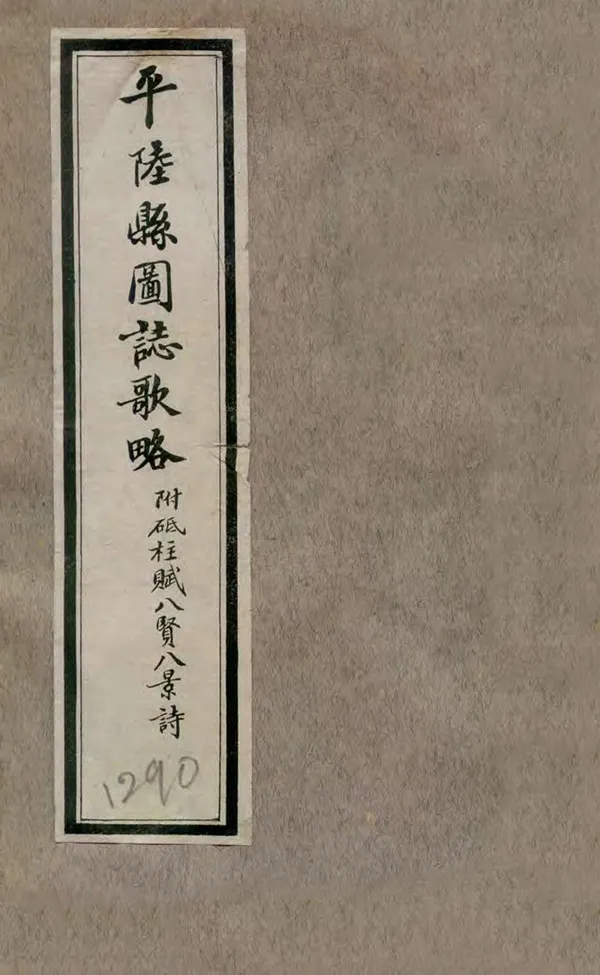 平陸縣圖誌歌略
附砥柱賦八賢八景詩
1290